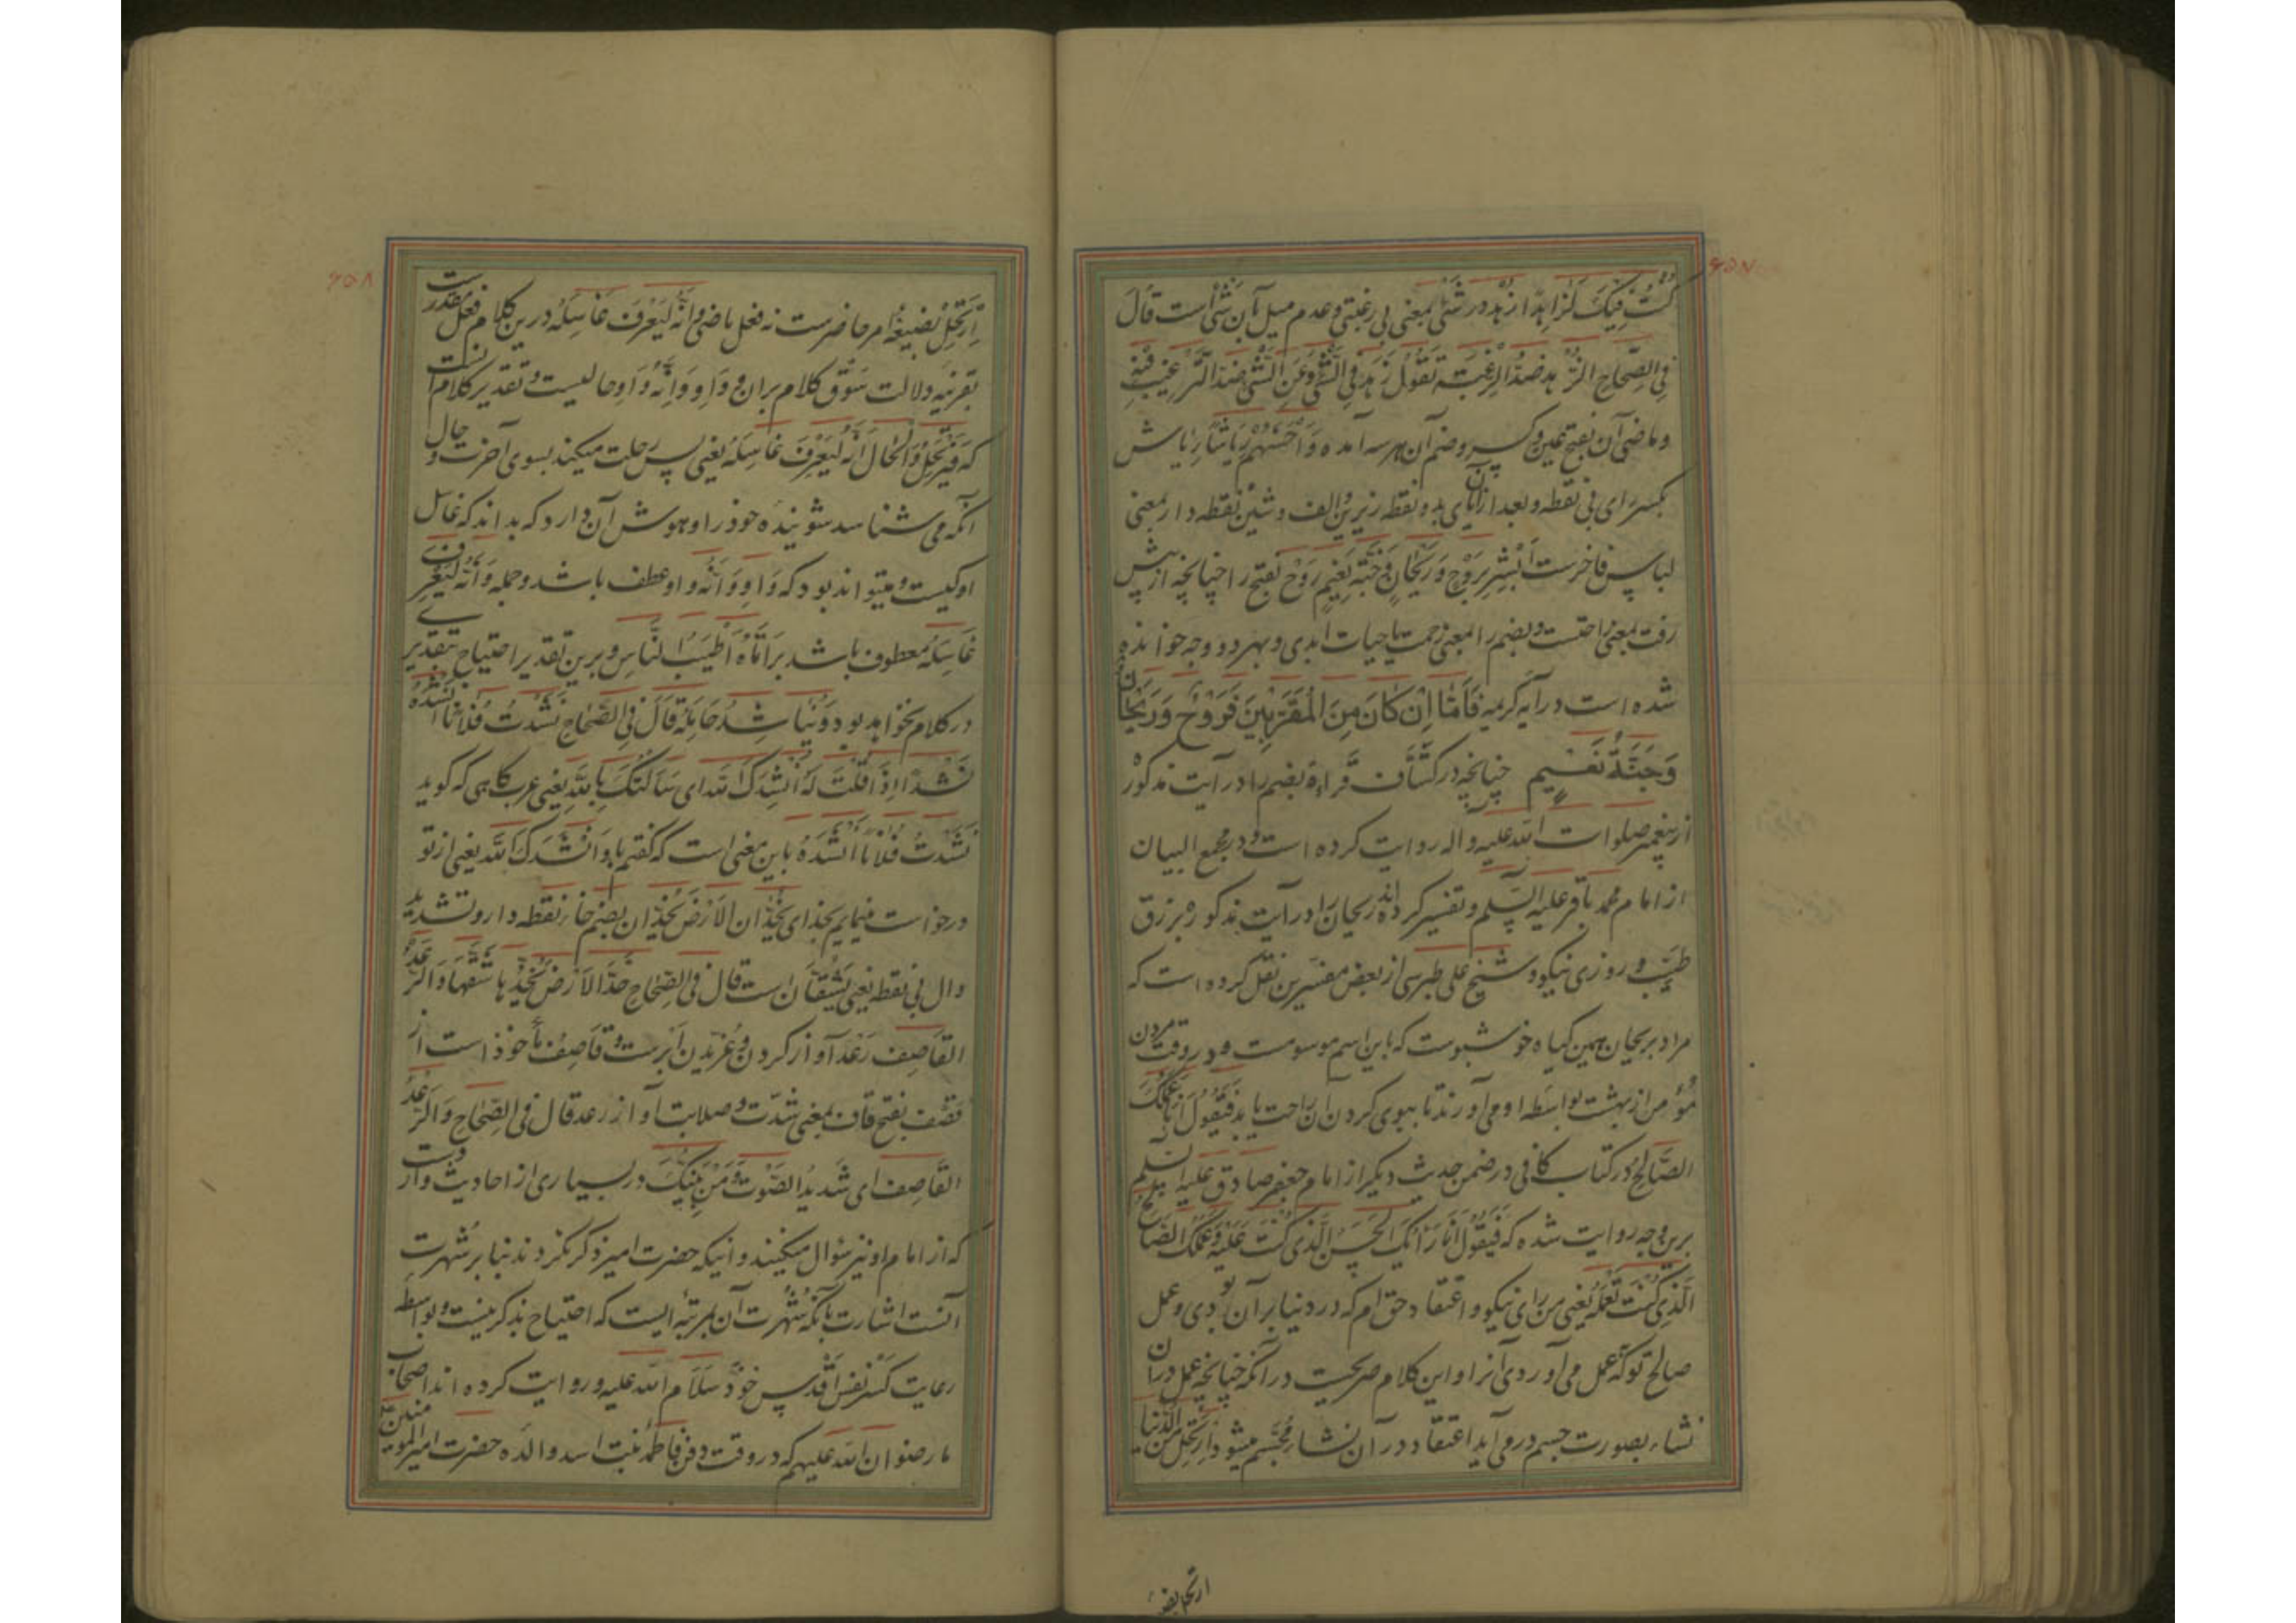 ۶۵۷
كُنْتُ فِيكَ لَزَاهِدًا زهد در شئ بمعنی بی رغبتی و عدم میل بآن شئ است قَالَ
فِی الصِّحاحِ الزُّهد ضدُّ الرَّغبَة تَقُولُ زَهِدَ فِی الشَّئ وَ عَنِ الشَّئ ضد التَّرغیب فیه
و ماضی آن بفتح عین و کسر و ضم آن هر سه آمده وَ اَحْسَنُهُمْ رِیَاشًا ریاش
بکسر رای بی نقطه و بعد از آن یای بدو نقطه زیرین و الف و شین نقطه دار بمعنی
لباس فاخرست اَبْشِرْ بِرَوْحٍ وَ رَیْحَانٍ وَ جَنَّةِ نَعِیمٍ رَوْح بفتح را چنانچه از پیش
رفت بمعنی راحتست و بضم را بمعنی رحمت یا حیات ابدی و بهر دو وجه خوانده
شده است در آیه کریمه فَاَمَّا اِنْ كَانَ مِنَ الْمُقَرَّبِینَ فَرَوْحٌ وَ رَیْحَانٌ
وَ جَنَّةُ نَعِیمٍ چنانچه در کشّاف قراءة بضم را در آیت مذکور
از پیغمبر صلوات الله علیه و اله روایت کرده است و در مجمع البیان
از امام محمد باقر علیه السّلم و تفسیر کرده اند ریحان را در آیت مذکوره برزق
طیّب و روزی نیکو و شیخ علی طبرسی از بعض مفسّرین نقل کرده است که
مراد بریحان همین کیاه خوشبوست که باین اسم موسومست و در وقت مردن
مؤمن از بهشت بواسطه او می آورند تا ببوی کردن آن راحت یابد فَیَقُولُ اَنَا عَمَلُكَ
الصَّالِحُ در کتاب کافی در ضمن حدیث دیکر از امام جعفر صادق علیه السلم
برین وجه روایت شده که فَیَقُولُ اَنَا رَاْیُكَ الْحَسَنُ الَّذِی كُنْتَ عَلَیْهِ وَ عَمَلُكَ الصَّالِحُ
الَّذِی كُنْتَ تَعْمَلُهُ یعنی من رای نیکو و اعتقاد حق ام که در دنیا بر آن بودی و عمل
صالح توکه بعمل می آوردی آنرا و این کلام صریحست در آنکه چنانچه عمل در آن
نشاء بصورت جسم در می آید اعتقاد در آن نشاء مجسّم میشود اِرْتَحِلْ مِنَ الدُّنْیَا
ارتحل بصیغه
۶۵۸
اِرْتَحِلْ بصیغهٔ امر حاضرست نه فعل ماضی وَ اِنَّهُ لَیَعْرِفُ غَاسِلَهُ درین کلام فعل مقدرست
بقرینه دلالت سَوق کلام بران و وَاوِ وَ اِنَّهُ وَاوِ حالیست و تقدیر کلام آنست
که فَیَرْتَحِلُ وَ الْحَالُ اَنَّهُ لَیَعْرِفُ غَاسِلَهُ یعنی پس رحلت میکند بسوی آخرت و حال
آنکه می شناسد شوینده خود را و هوش آن دارد که بداند که غاسل
او کیست و میتواند بود که وَاوِ وَ اَنَّهُ واو عطف باشد و جمله وَ اَنَّهُ لَیَعْرِفُ
غَاسِلَهُ معطوف باشد بر اَتَاهُ اَطْیَبُ النَّاسِ و برین تقدیر احتیاج بتقدیری
در کلام نخواهد بود وَ یُنَاشِدُ حَامِلَهُ قَالَ فِی الصِّحاحِ نَشَدْتُ فُلَانًا اَنْشُدُهُ
نَشْدًا اِذَا قُلْتَ لَهُ اَنْشُدُكَ اللهَ ای سَأَلْتُكَ بِاللهِ یعنی عرب کاهی که کوید
نَشَدْتُ فُلَانًا اَنْشُدُهُ باین معنی است که کفتم باو اَنْشُدُكَ اللهَ یعنی از تو
درخواست مینمایم بخدای یَخُدَّانِ الْاَرْضَ یَخُدَّانِ بضم خاء نقطه دار و تشدید
دال بی نقطه یعنی یَشُقَّان است قال فی الصحاح خَدَّ الْاَرْضَ یَخُدُّهَا شَقَّهَا وَ الرَّعْدُ
القَاصِف رَعْد آواز کردن و غریدن ابرست و قَاصِف مأخوذ است از
قَصْف بفتح قاف بمعنی شدّت و صلابت آواز رعد قال فی الصِّحَاحِ وَ الرَّعْدُ
القَاصِف ای شَدیدُ الصَّوْتِ وَ مَنْ نَبِیُّكَ در بسیاری از احادیث واردست
که از امام او نیز سؤال میکنند و اینکه حضرت امیر ذکر نکردند بنا بر شهرت
آنست اشارت بآنکه شُهرت آن بمرتبهٔ ایست که احتیاج بذکر نیست و بواسطه
رعایت کسر نفس اقدس خود سَلَام الله علیه و روایت کرده اند اصحاب
ما رضوان الله علیهم که در وقت دفن فاطمه بنت اسد والده حضرت امیرالمومنین